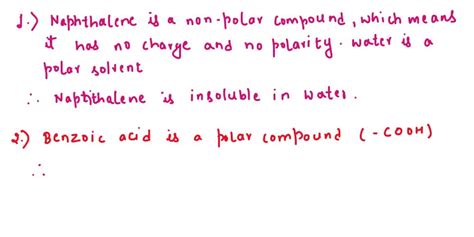 1.) Naphthalene is a non-polar compound, which means
it has no charge and no polarity. water is a
polar solvent
∴ Naptithalene is insoluble in water.
2.) Benzoic acid is a polar compound (-COOH)
∴